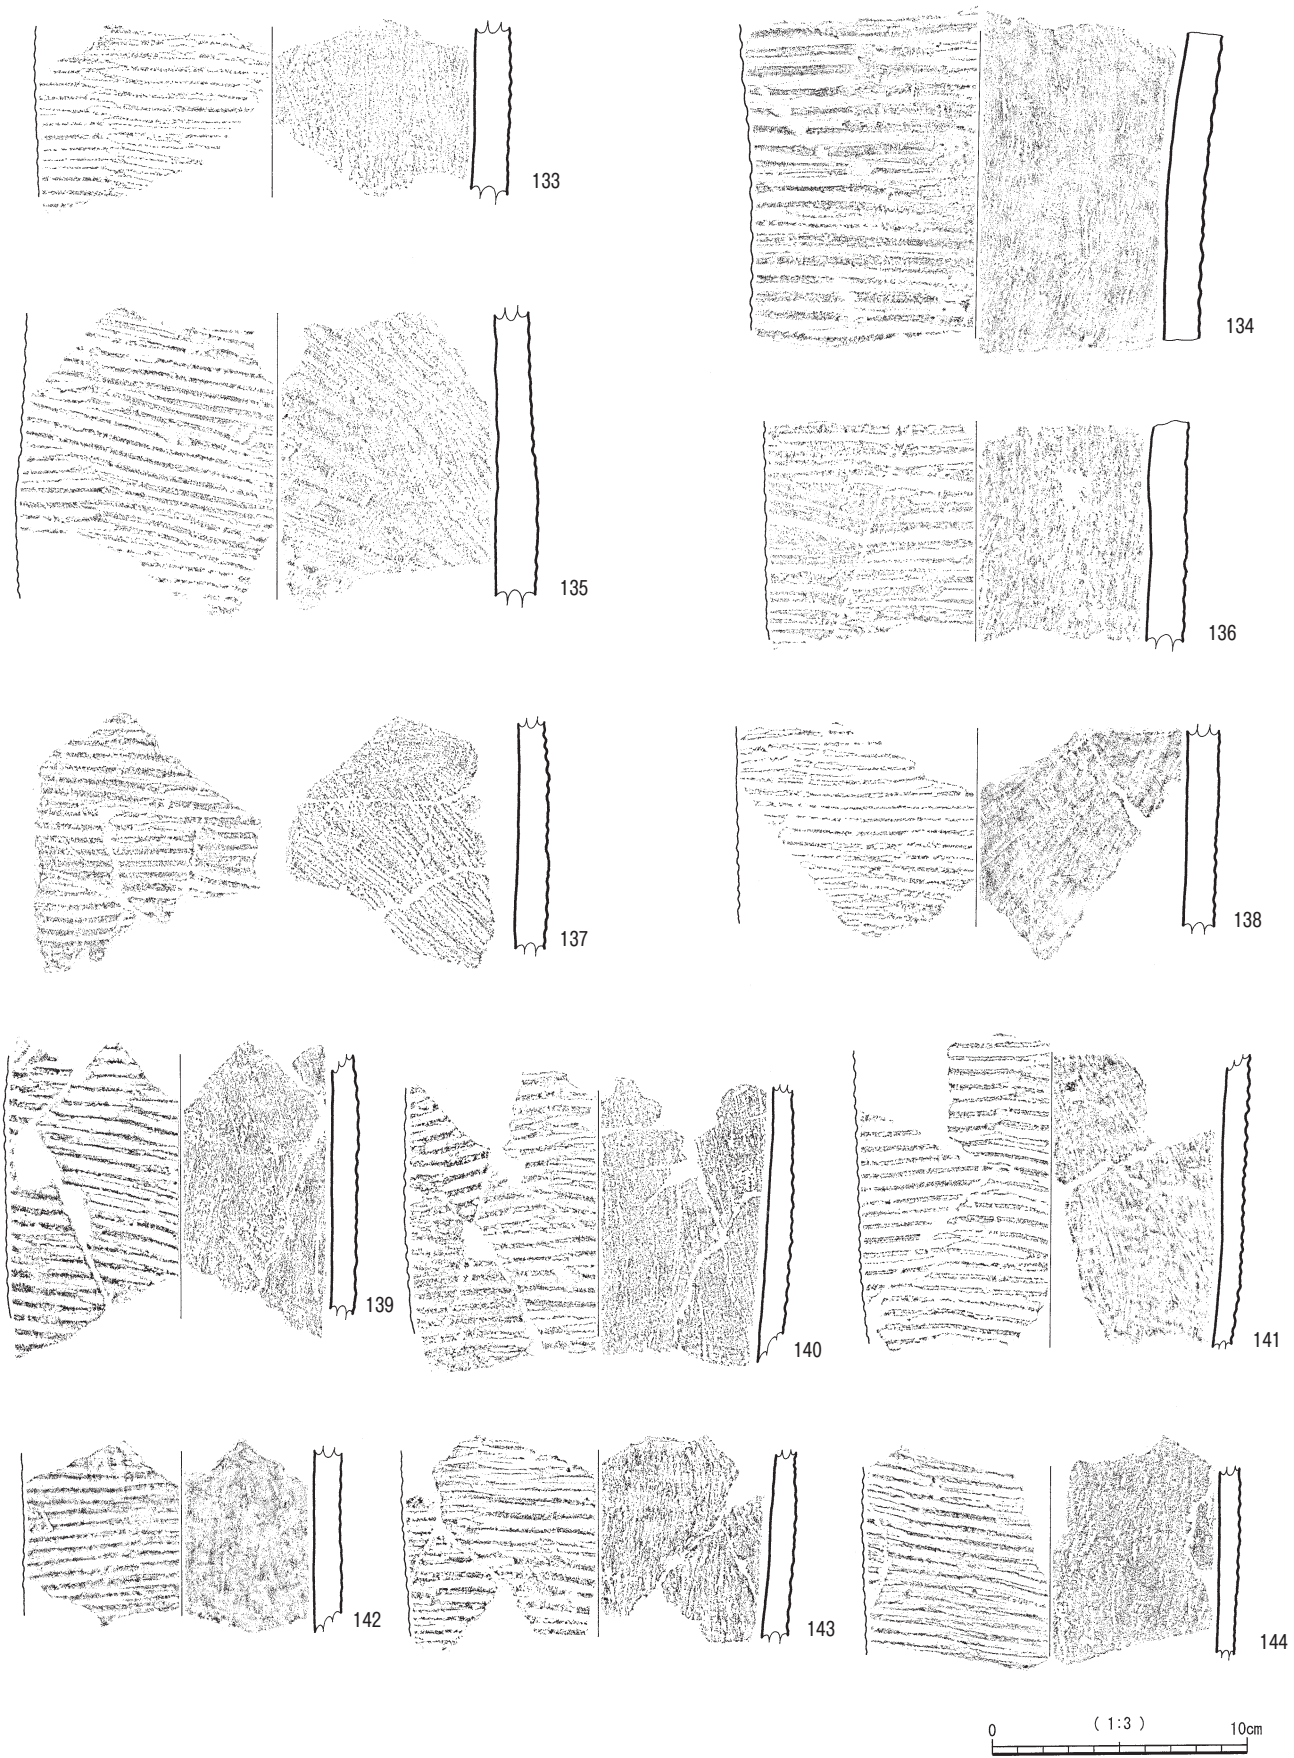 133
134
135
136
137
138
139
140
141
142
143
144
0 (1:3) 10cm